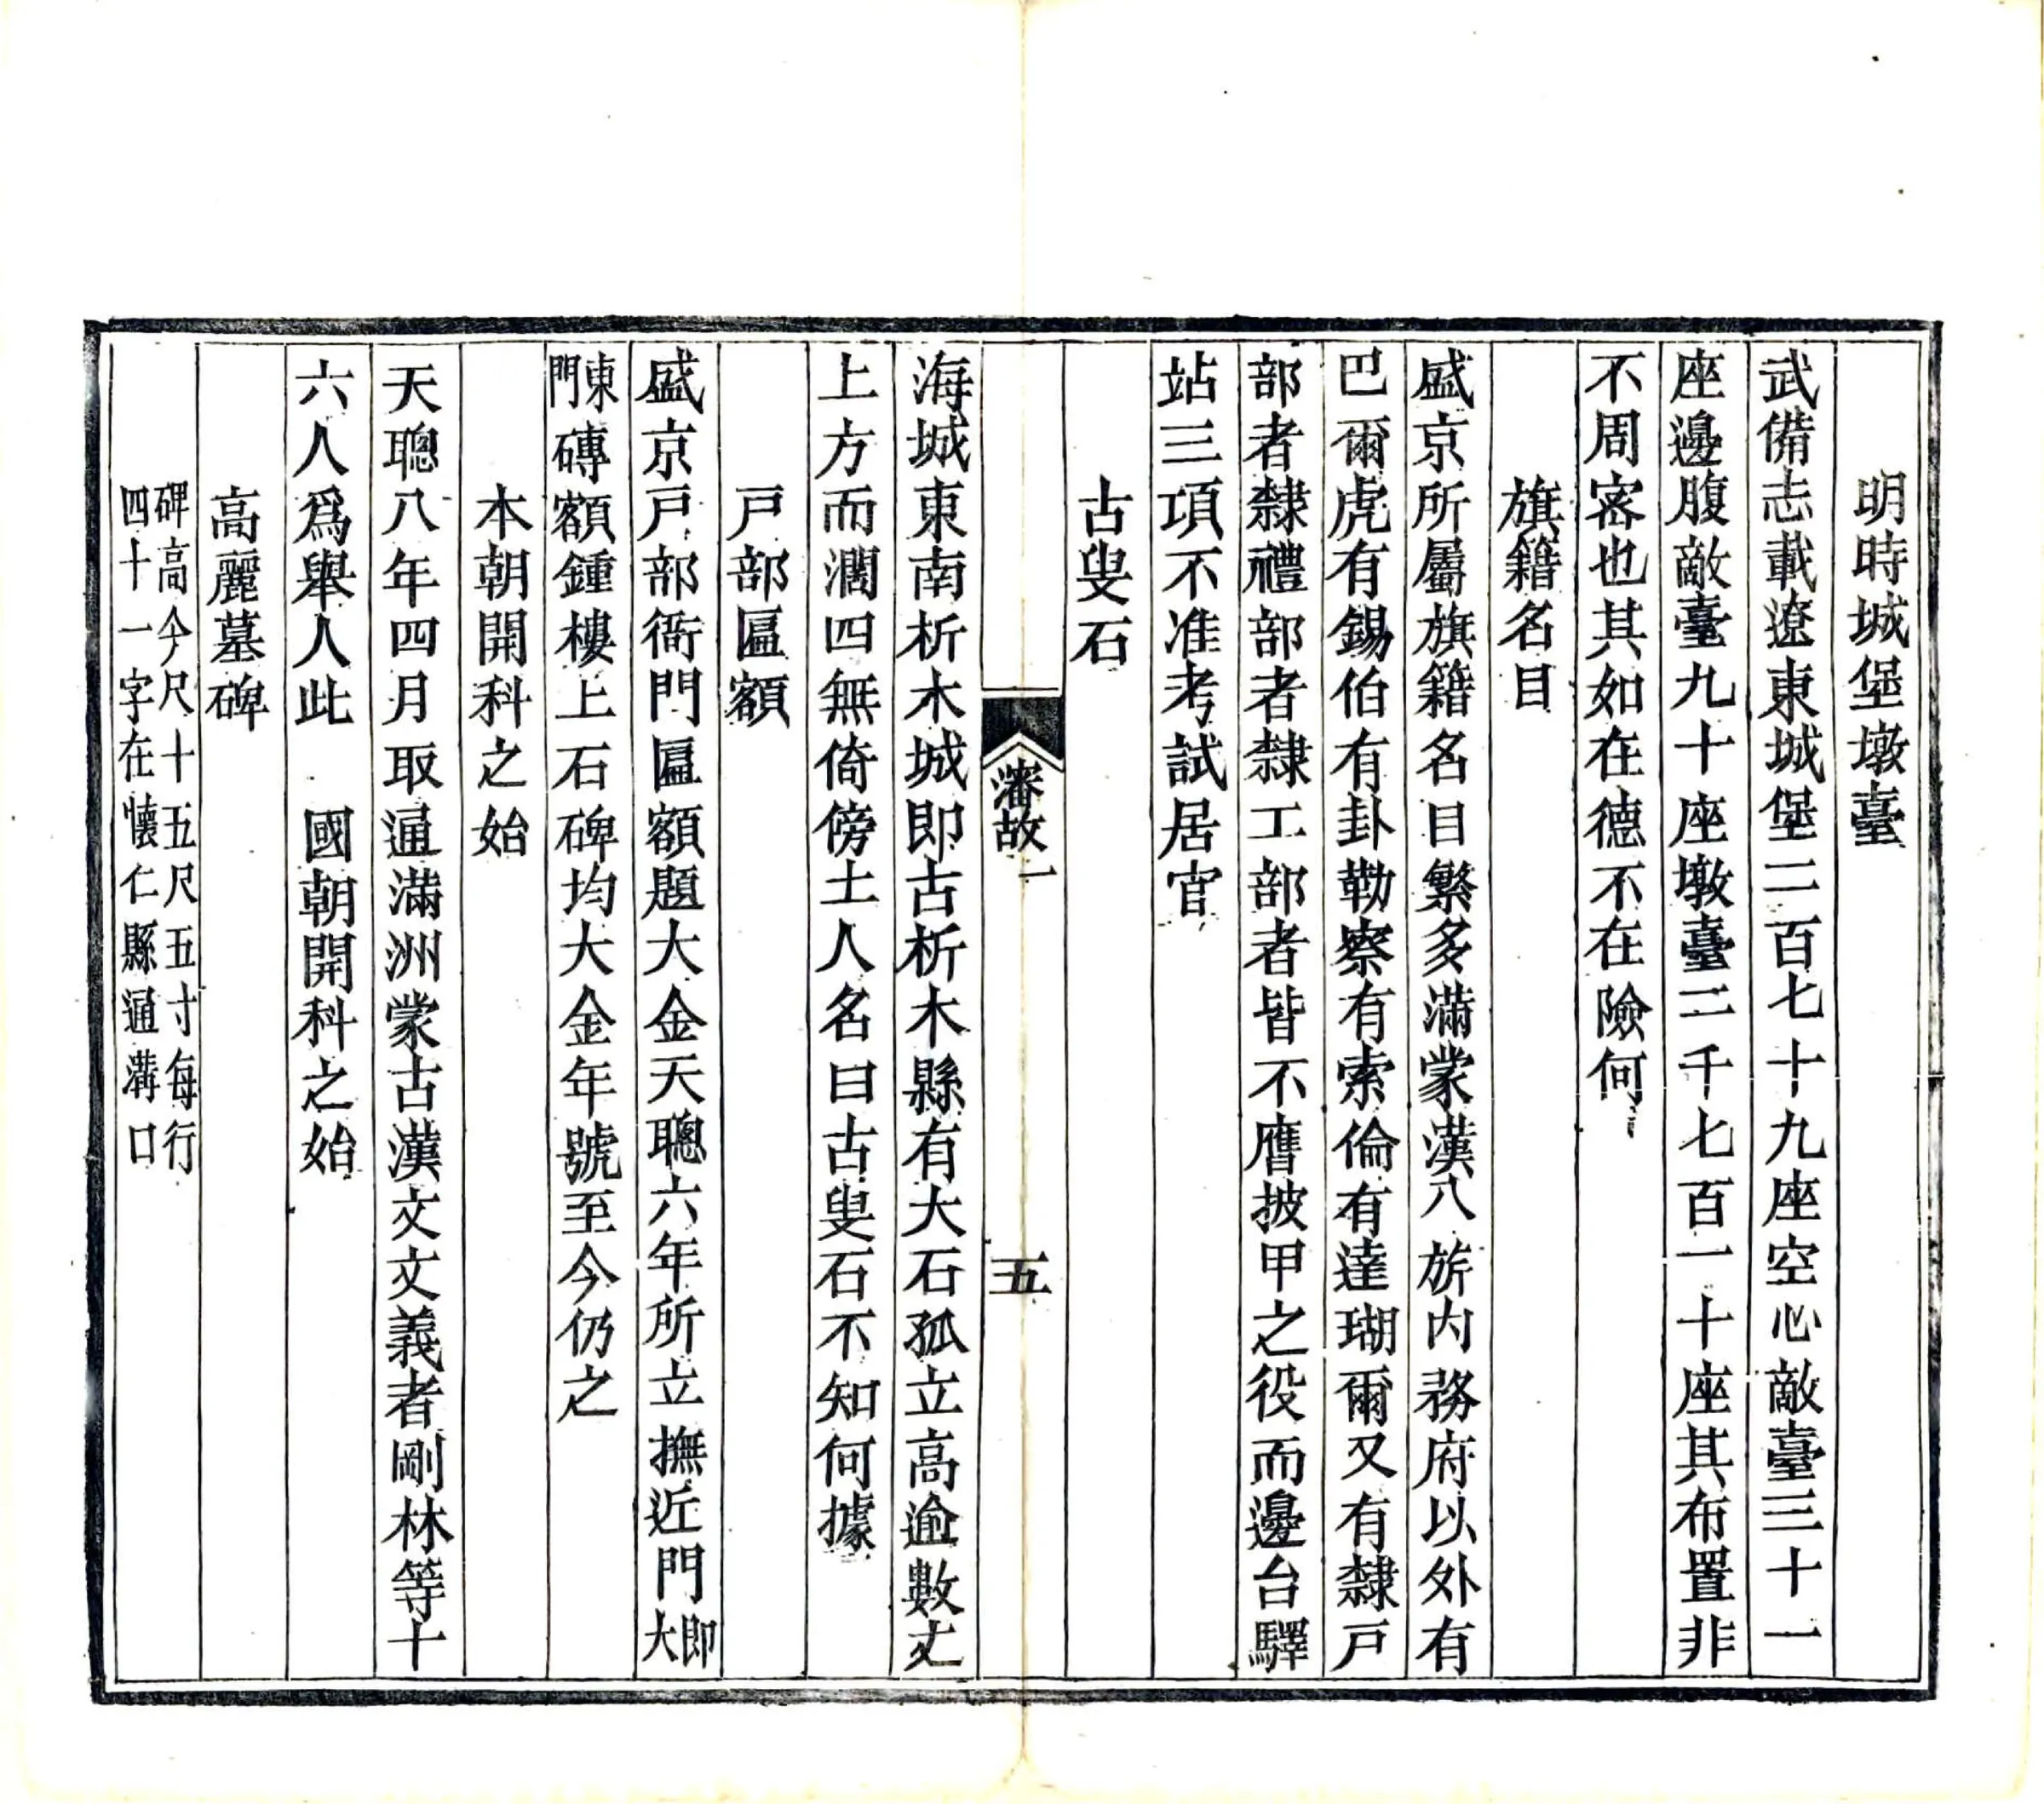 明時城堡墩臺
武備志載遼東城堡二百七十九座空心敵臺三十一
座邊腹敵臺九十座墩臺二千七百一十座其布置非
不周密也其如在德不在險何
旗籍名目
盛京所屬旗籍名目繁多滿蒙漢八旂內務府以外有
巴爾虎有錫伯有卦勒察有索倫有達瑚爾又有隸戶
部者隸禮部者隸工部者皆不膺披甲之役而邊台驛
站三項不准考試居官
古叟石
瀋故一
五
海城東南析木城即古析木縣有大石孤立高逾數丈
上方而濶四無倚傍土人名曰古叟石不知何據
戸部匾額
盛京戸部衙門匾額題大金天聰六年所立撫近門即大
東門磚額鍾樓上石碑均大金年號至今仍之
本朝開科之始
天聰八年四月取通滿洲蒙古漢文文義者剛林等十
六人爲舉人此 國朝開科之始
高麗墓碑
碑高今尺十五尺五寸每行
四十一字在懷仁縣通溝口